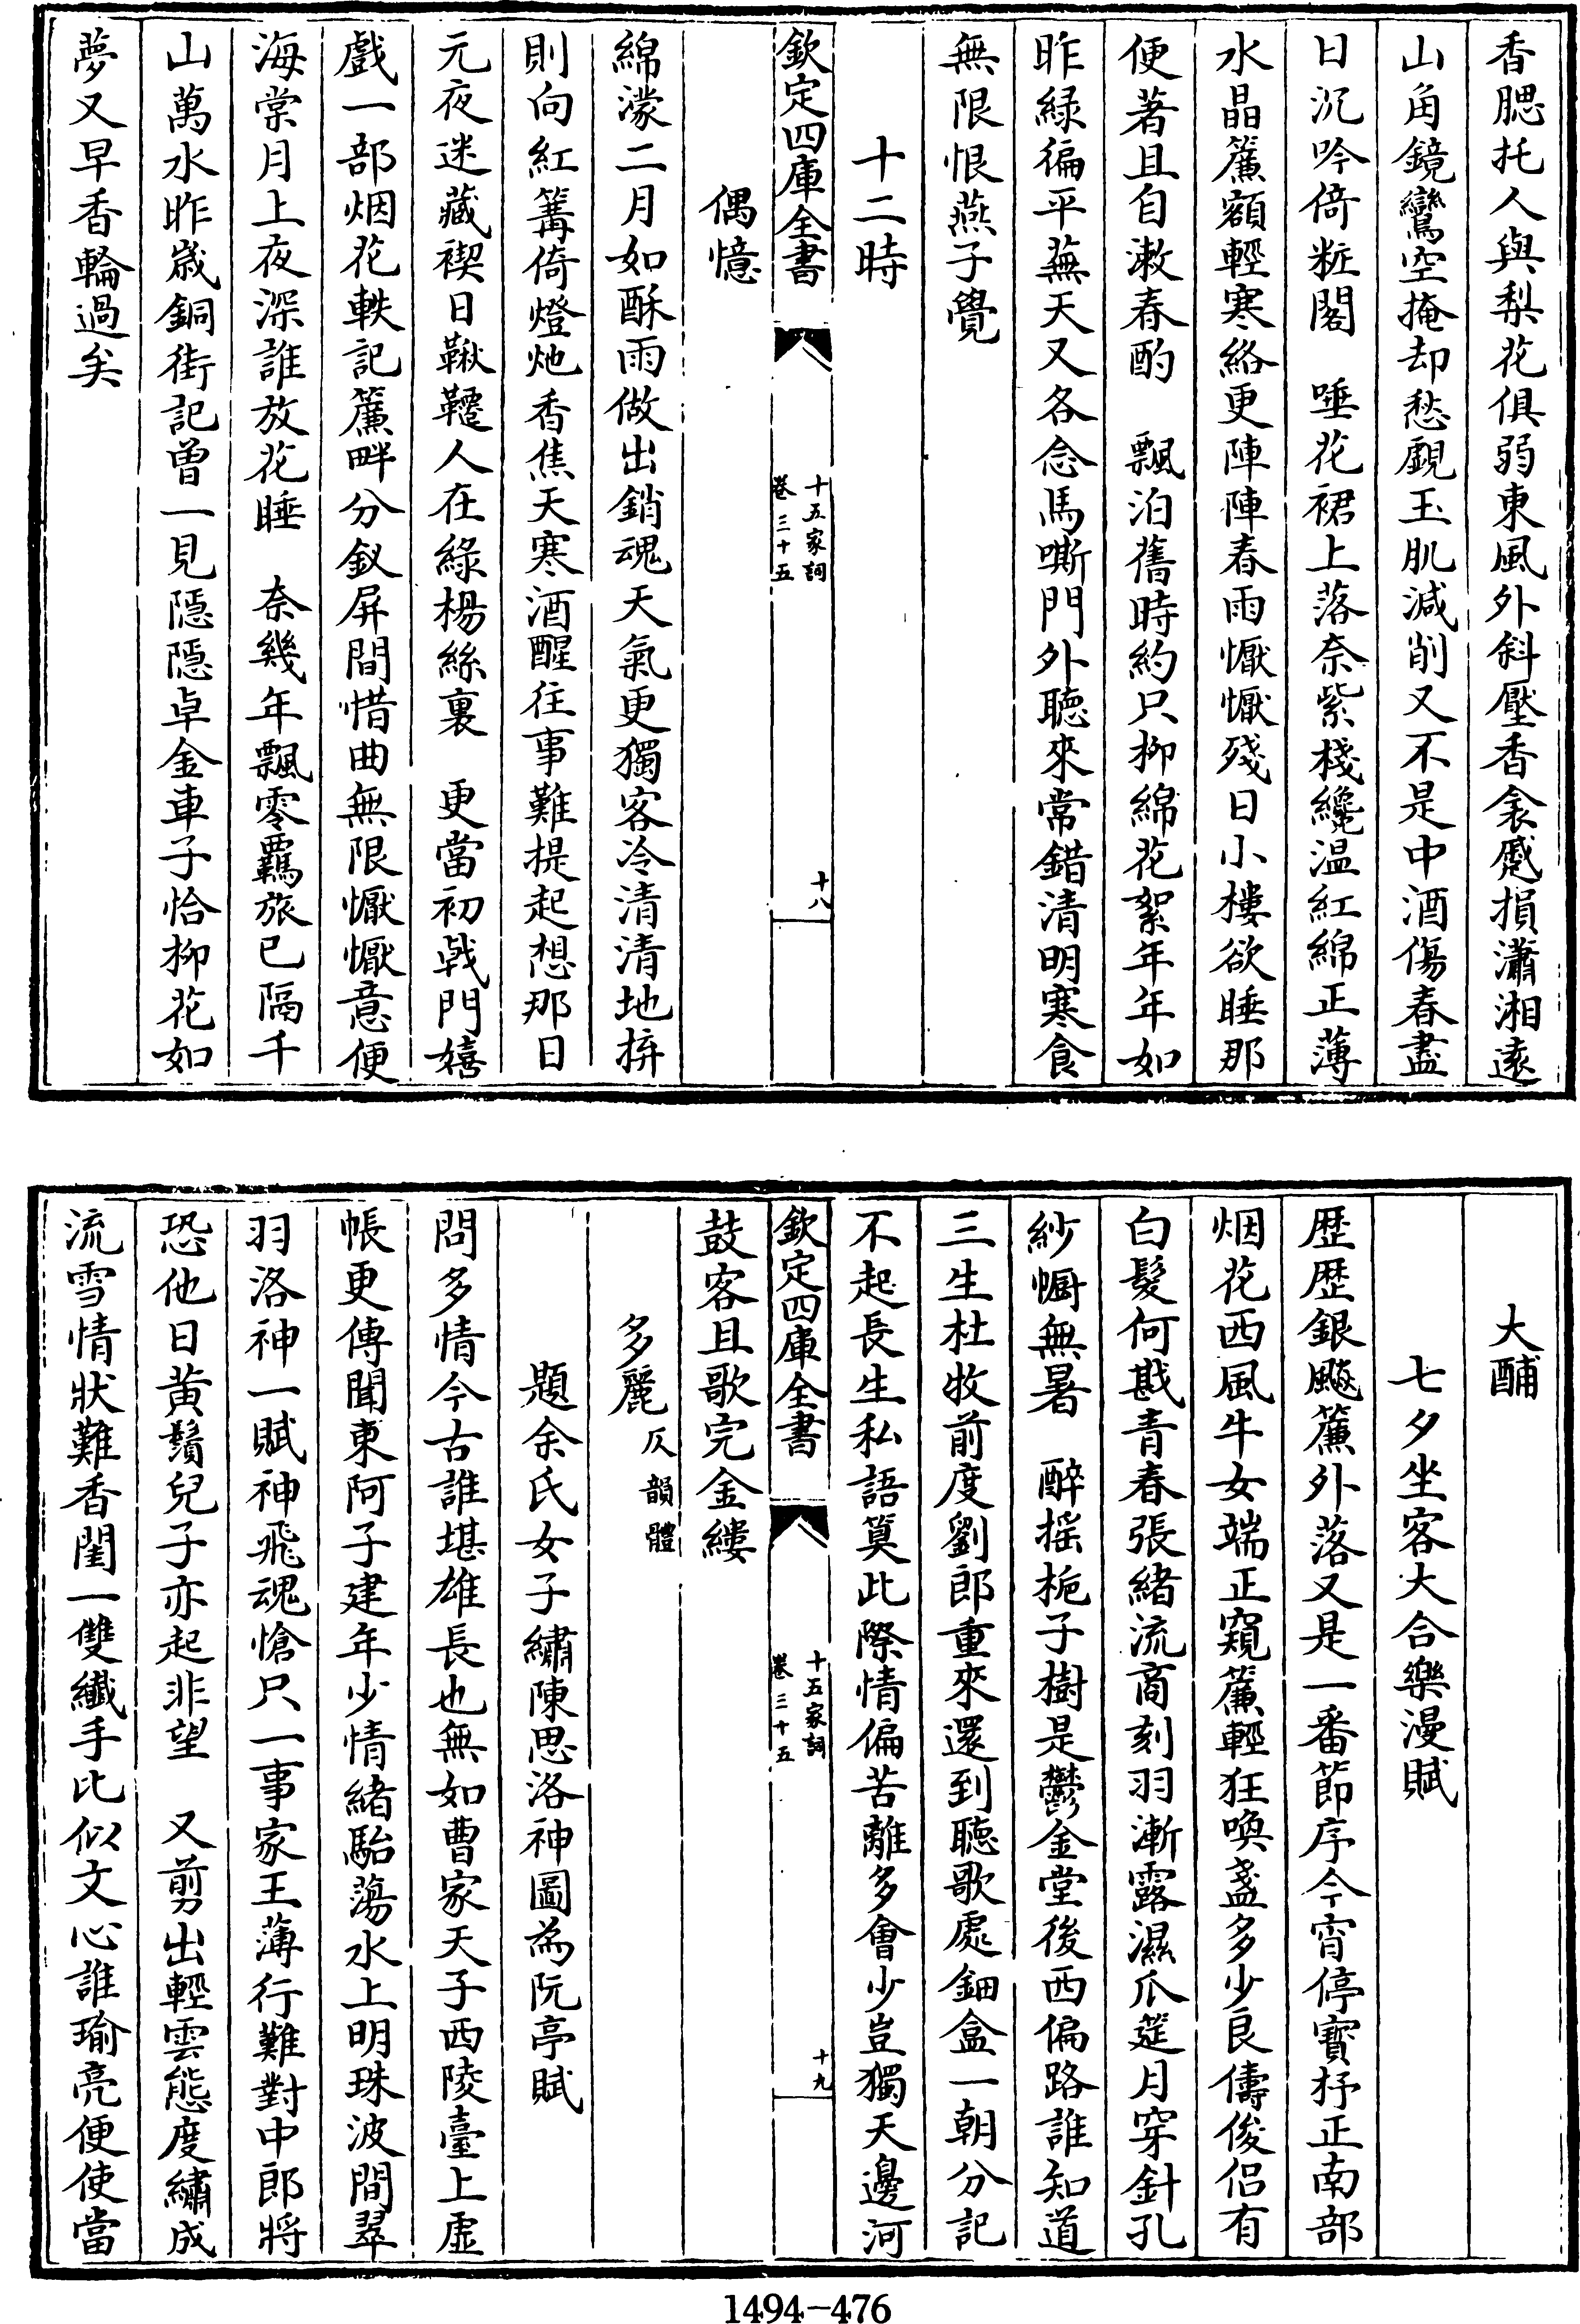 香腮托人與梨花俱弱東風外斜壓香衾慼損瀟湘遠
山角鏡鸞空掩却愁覷玉肌減削又不是中酒傷春盡
日沉吟倚粧閣　唾花裙上落奈紫棧纔温紅綿正薄
水晶簾額輕寒絡更陣陣春雨懨懨殘日小樓欲睡那
便著且自漱春酌　飄泊舊時約只栁綿花絮年年如
昨緑徧平蕪天又各念馬嘶門外聽來常錯清明寒食
無限恨燕子覺
十二時
欽定四庫全書
十五家詞
卷三十五
十八
偶憶
綿濛二月如酥雨做出銷魂天氣更獨客冷清清地拚
則向紅篝倚燈灺香焦天寒酒醒往事難提起想那日
元夜迷藏禊日鞦韆人在緑楊絲裏　更當初㦸門嬉
戲一部烟花軼記簾畔分釵屏間惜曲無限懨懨意便
海棠月上夜深誰放花睡　奈幾年飄零羈旅已隔千
山萬水昨嵗銅街記曾一見隱隱卓金車子恰栁花如
夢又早香輪過矣
大酺
七夕坐客大合樂漫賦
歴歴銀颷簾外落又是一番節序今宵停寳杼正南部
烟花西風牛女端正窺簾輕狂喚盞多少良儔俊侣有
白髪何戡青春張緒流商刻羽漸露濕爪筵月穿針孔
紗㡡無暑　醉摇梔子樹是鬱金堂後西偏路誰知道
三生杜牧前度劉郎重來還到聽歌處鈿盒一朝分記
不起長生私語算此際情偏苦離多會少豈獨天邊河
欽定四庫全書
十五家詞
卷三十五
十九
鼓客且歌完金縷
多麗仄韻體
題余氏女子繡陳思洛神圖為阮亭賦
問多情今古誰堪雄長也無如曹家天子西陵臺上虚
帳更傳聞東阿子建年少情緒駘蕩水上明珠波間翠
羽洛神一賦神飛魂愴只一事家王薄行難對中郎將
恐他日黄鬚兒子亦起非望　又剪出輕雲態度繡成
流雪情狀難香閨一雙纖手比似文心誰瑜亮便使當
1494-476